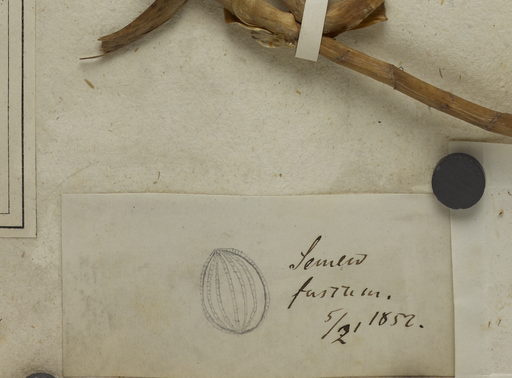 Semen
fustum.
5/2 1852.